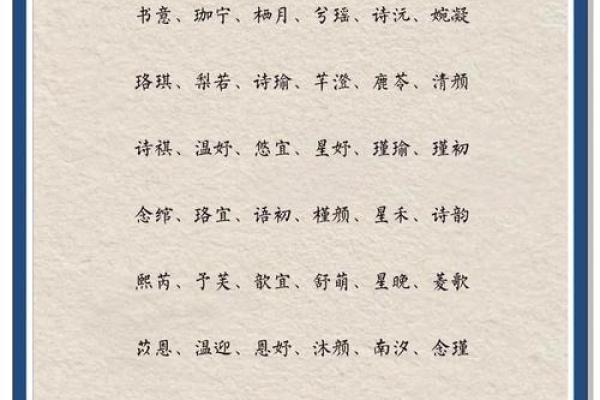 书意、珈宁、栖月、兮瑶、诗沅、婉凝
珞琪、梨若、诗瑜、芊澄、鹿苓、清颜
诗祺、温妤、悠宜、星妤、瑾瑜、瑾初
念绾、珞宜、语初、槿颜、星禾、诗韵
熙芮、予芙、歆宜、舒萌、星晚、菱歌
苡恩、温迎、恩妤、沐颜、南汐、念瑾